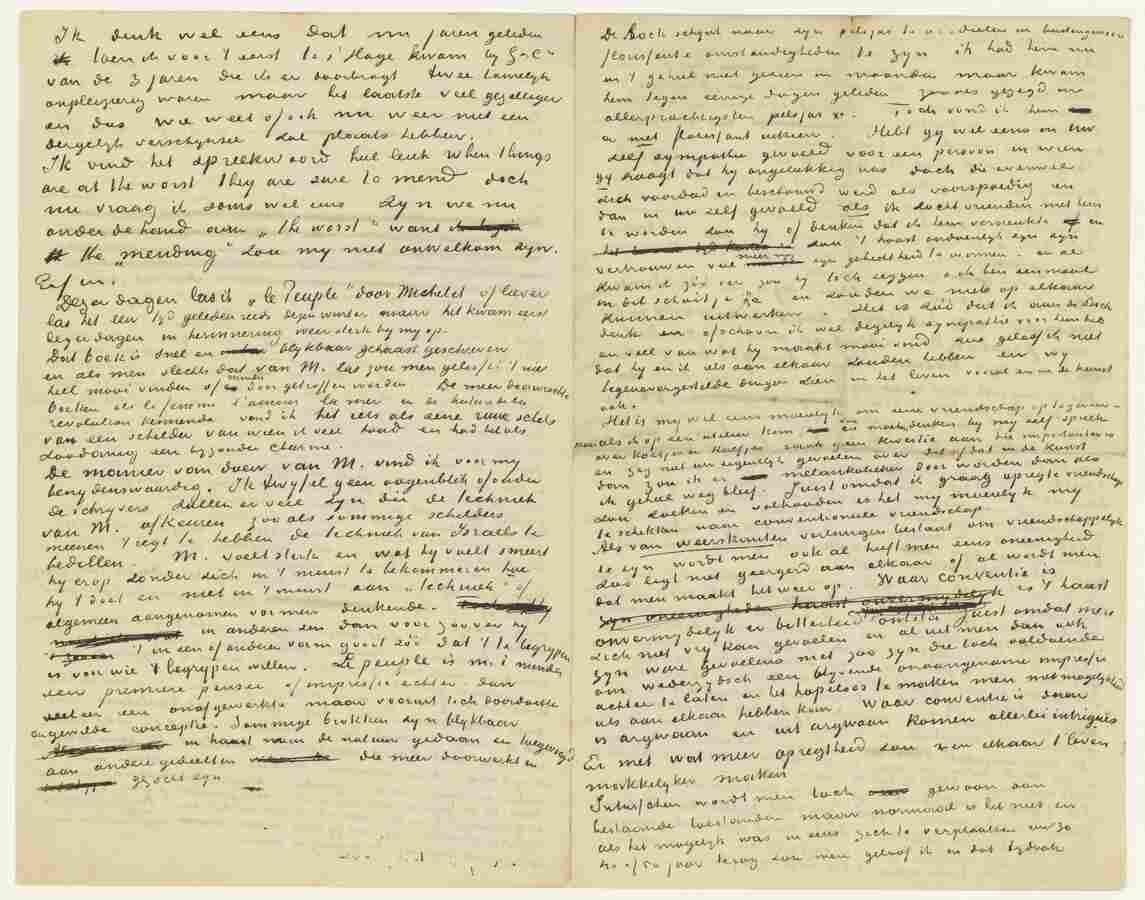 Ik denk wel eens dat nu jaren geleden
toen ik voor 't eerst te 's Hage kwam by G&C°
van de 3 jaren die ik er doorbragt twee tamelyk
onpleizierig waren maar het laatste veel gezelliger
en dus wie weet of ook nu weer niet een
dergelyk verschynsel zal plaats hebben.
Ik vind het spreekwoord heel leuk when things
are at the worst they are sure to mend doch
nu vraag ik soms wel eens zyn we nu
onderdehand aan „the worst" want
the „mending" zou my niet onwelkom zyn.
Enfin.
Dezer dagen las ik „le Peuple" door Michelet of liever
las het een tyd geleden reeds dezen winter maar 't kwam eerst
dezer dagen in herinnering weer sterk by my op.
Dat boek is snel en blykbaar gehaast geschreven
en als men slechts dat van M. las zou men geloof ik 't niet
heel mooi vinden of minder door getroffen worden. De meer doorwrochte
boeken als la femme l'amour la mer en de histoire de la
revolution kennende vond ik het iets als eene ruwe schets
van een schilder van wien ik veel houd en had het als
zoodanig een byzonder charme.
De manier van doen van M. vind ik voor my
benydenswaardig. Ik twyfel geen oogenblik of onder
de schryvers zullen er veel zyn die de techniek
van M. afkeuren zooals sommige schilders
meenen 't regt te hebben de techniek van Israels te
bedillen. M. voelt sterk en wat hy voelt smeert
hy erop zonder zich in 't minst te bekommeren hoe
hy 't doet en niet in 't minst aan „techniek" of
algemeen aangenomen vormen denkende.
in anderen zin dan voor zoover hy
't in een of anderen vorm giet zóó dat 't te begrypen
is voor wie 't begrypen willen. Le peuple is m.i. minder
eene premiere pensee of impressie echter dan
wel een onafgewerkte maar vooruit toch doordachte
en gevoelde conceptie. Sommige brokken zyn blykbaar
in haast naar de natuur gedaan en toegevoegd
aan andere gedeelten die meer doorwerkt en
gezocht zyn
De Bock schynt naar zyn pelsjas te oordeelen in buitengewoon
florissante omstandigheden te zyn ik had hem nu
in 't geheel niet gezien in maanden maar kwam
hem tegen eenige dagen geleden zooals gezegd in
allerprachtigsten pelsjas x°. Toch vond ik hem
er niet florissant uitzien. Hebt gy wel eens in uw
zelf sympathie gevoeld voor een persoon in wien
gy zaagt dat hy ongelukkig was doch die evenwel
zich voordeed en beschouwd werd als voorspoedig en
dan in uw zelf gevoeld als ik zocht vrienden met hem
te worden zou hy of denken dat ik hem versneukte en
dan 't haast ondoenlyk zyn zyn
vertrouwen gehechtheid te winnen. en al
kwam ik zóó ver zou hy toch zeggen ook ben eenmaal
in dit schuitje en zouden we niets op elkaar
kunnen uitwerken. Het is zóó dat ik aan de Bock
denk en ofschoon ik wel degelyk sympathie voor hem heb
en veel van wat hy maakt mooi vind dus geloof ik niet
dat hy en ik iets aan elkaar zouden hebben en wy
tegenovergestelde dingen zien in het leven vooral en in de kunst
ook.
Het is my wel eens moeielyk om eene vriendschap op te geven
maar als ik op een atelier kom en moet denken by my zelf spreek
over koetjes en kalfjes raak geen kwestie aan die importantie is
en zeg niet uw eigenlyk gevoelen over dit of dat in de kunst
dan zou ik er melankolieker door worden dan als
ik geheel weg bleef. Juist omdat ik graag opregte vriendschap
zou zoeken en volhouden is het my moeielyk my
te schikken naar conventioneele vriendschap.
Als van weerskanten verlangen bestaat om vriendschappelyk
te zyn wordt men ook al heeft men eens oneenigheid
zoo ligt niet geergerd aan elkaar of al wordt men
dat men maakt het weer op. Waar conventie is
is 't haast
onvermydelyk er bitterheid ontsta juist omdat men
zich niet vry kan gevoelen en al uit men dan ook
zyn ware gevoelens niet zoo zyn die toch voldoende
om wederzydsch een blyvende onaangename impressie
achter te laten en het hopeloos te maken men mogelykheid
iets aan elkaar hebben kan. Waar conventie is daar
is argwaan en uit argwaan komen allerlei intrigues
En met wat meer opregtheid zou men elkaar 't leven
makkelyker maken
Intusschen wordt men toch gewoon aan
bestaande toestanden maar normaal is het niet en
als het mogelyk was in eens zich te verplaatsen een 30
40 of 50 jaar terug zou men geloof ik in dat tydvak